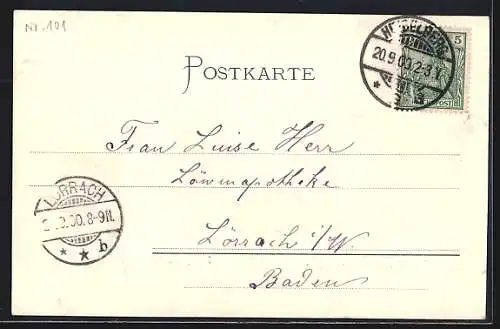 Nr. 101
HEIDELBERG
20.9.00.2-3.V.
5
POSTKARTE
Frau Luise Herr
Löwenapotheke
Lörrach i/W.
Baden
LÖRRACH
.9.00.8-9N.
b